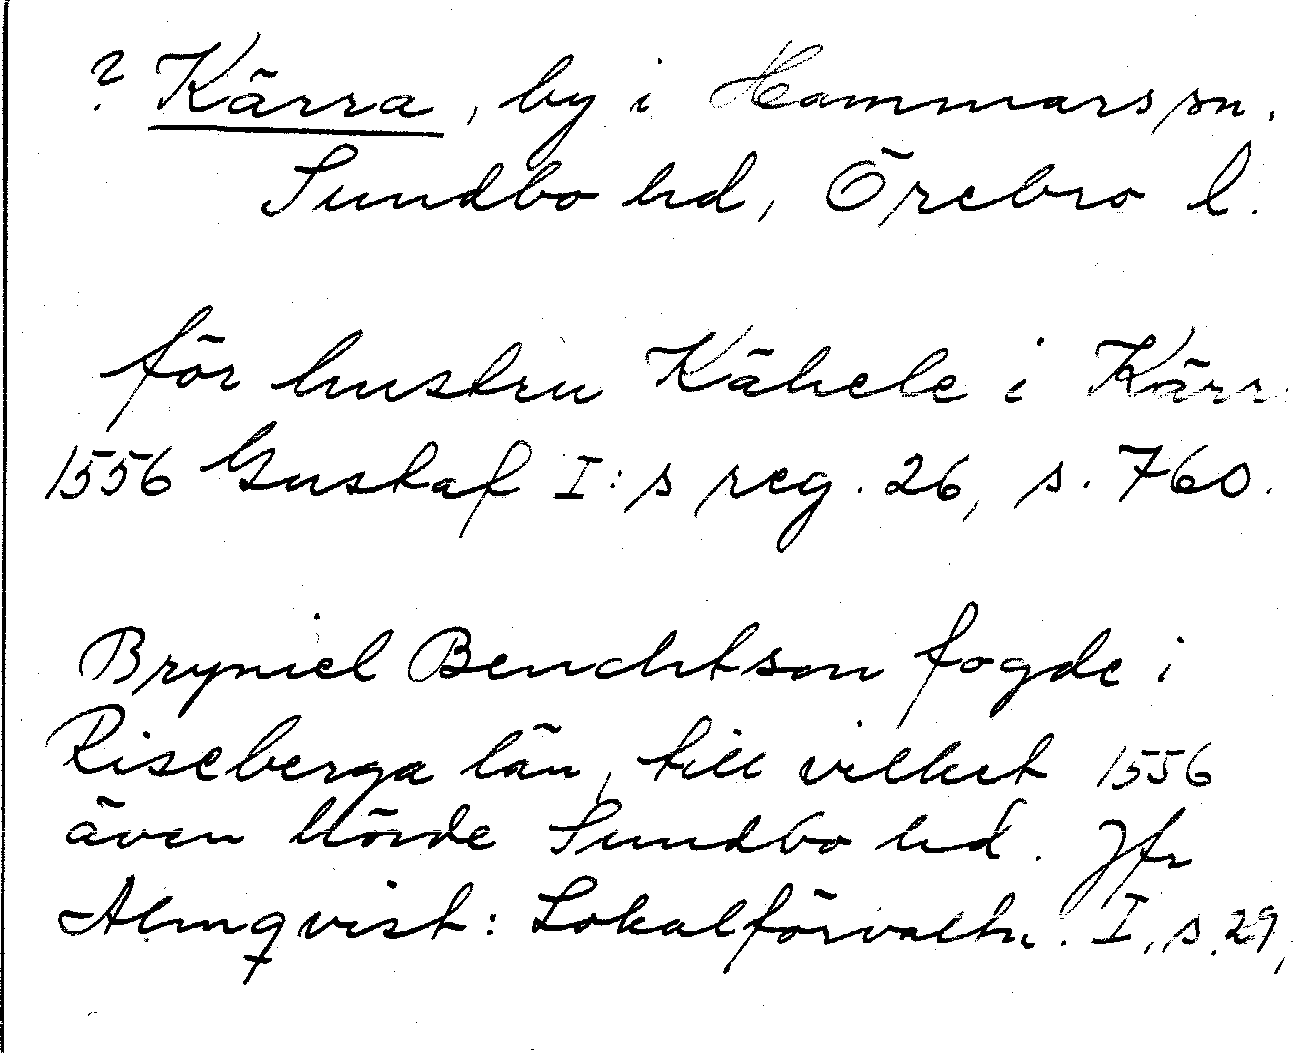 ? Kärra, by i Hammars sn.
Sundbo hd, Örebro l.
för hustru Kähele i Kärr
1556 Gustaf I:s reg. 26, s. 760.
Bryniel Benchtson fogde i
Riseberga län, till vilket 1556
även hörde Sundbo hd. Jfr
Almqvist: Lokalförvaltn. I, s. 29,